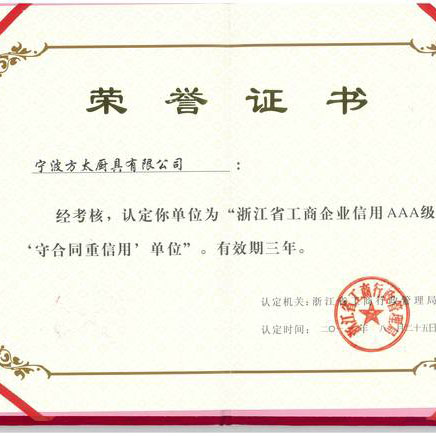 荣誉证书
宁波方太厨具有限公司：
经考核，认定你单位为“浙江省工商企业信用AAA级
‘守合同重信用’单位”。有效期三年。
认定机关：浙江省工商行政管理局
认定时间：二〇 年八月二十五日
浙江省工商行政管理局